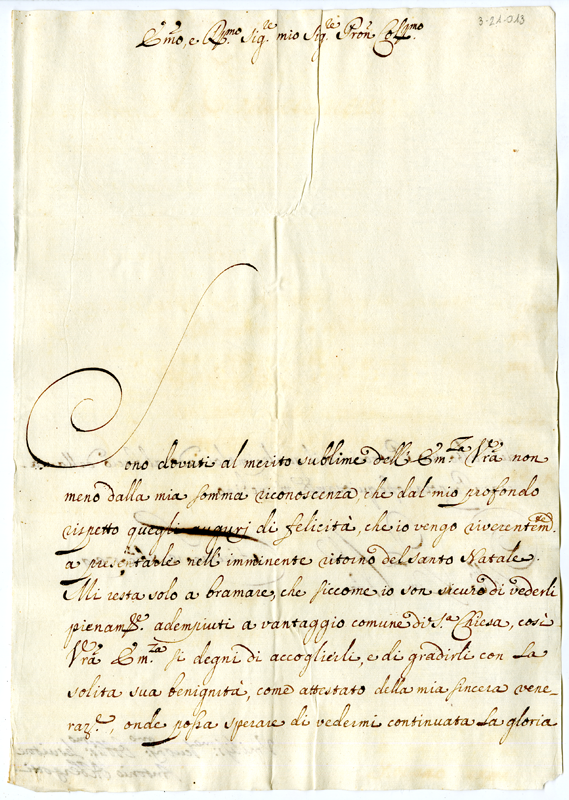 3-21-013
Emo, e Rmo Sigre mio Sigre Pron Colmo
Sono dovuti al merito sublime dell' Emza Vra non
meno dalla mia somma riconoscenza, che dal mio profondo
rispetto quegli augurj di felicità, che io vengo riverentemte
a presentarle nell' imminente ritorno del Santo Natale.
Mi resta solo a bramare, che siccome io son sicuro di vederli
pienamte adempiuti a vantaggio comune di Sa Chiesa, così
Vra Emza si degni di accoglierli, e di gradirli con la
solita sua benignità, come attestato della mia sincera vene-
raze, onde possa sperare di vedermi continuata la gloria